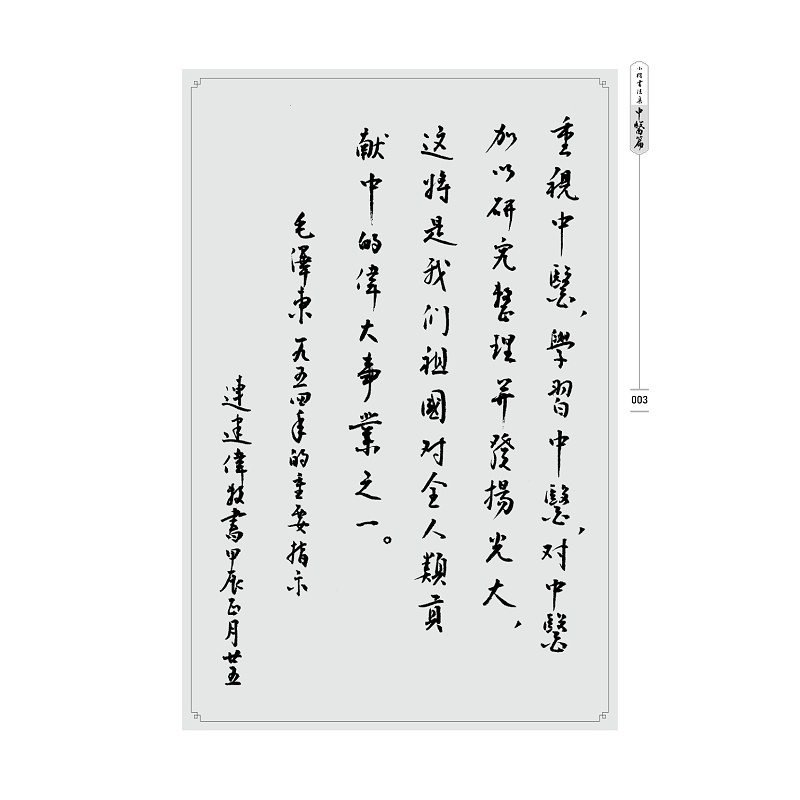 小楷書法集
中醫篇
003
重視中醫,學習中醫,对中醫
加以研究整理并發揚光大,
这将是我们祖國对全人類貢
献中的偉大事業之一。
毛澤東一九五四年的重要指示
連建偉敬書甲辰正月廿五